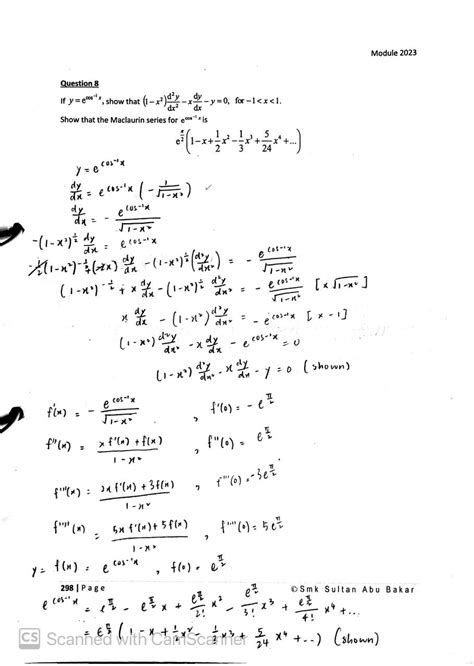 Module 2023
Question 8
If y = e^(cos⁻¹ x), show that (1 − x²) d²y/dx² − x dy/dx − y = 0, for −1 < x < 1.
Show that the Maclaurin series for e^(cos⁻¹ x) is
e^(π/2) (1 − x + 1/2 x² − 1/3 x³ + 5/24 x⁴ + ...)
y = e^(cos⁻¹x)
dy/dx = e^(cos⁻¹x) (− 1/√(1−x²)) ✓
dy/dx = − e^(cos⁻¹x)/√(1−x²)
−(1−x²)^(1/2) dy/dx = e^(cos⁻¹x)
−1/2 (1−x²)^(−1/2) (−2x) dy/dx − (1−x²)^(1/2) (d²y/dx²) = − e^(cos⁻¹x)/√(1−x²)
(1−x²)^(−1/2) x dy/dx − (1−x²)^(1/2) d²y/dx² = − e^(cos⁻¹x)/√(1−x²) [x √(1−x²)]
x dy/dx − (1−x²) d²y/dx² = − e^(cos⁻¹x) [x −1]
(1−x²) d²y/dx² − x dy/dx − e^(cos⁻¹x) = 0
(1−x²) d²y/dx² − x dy/dx − y = 0 (shown)
f'(x) = − e^(cos⁻¹x)/√(1−x²) , f'(0) = − e^(π/2)
f''(x) = (x f'(x) + f(x))/(1−x²) , f''(0) = e^(π/2)
f'''(x) = f'(x) + 3f(x)/(1−x²) , f'''(0) = −3e^(π/2)
f''''(x) = (5x f'(x) + 5f(x))/(1−x²) , f''''(0) = 5e^(π/2)
y = f(x) = e^(cos⁻¹x) , f(0) = e^(π/2)
298 | Page ©Smk Sultan Abu Bakar
e^(cos⁻¹x) = e^(π/2) − e^(π/2) x + e^(π/2)/2! x² − /3! x³ + /4! x⁴ + ...
= e^(π/2) (1 − x + 1/2 x² − 1/3 x³ + 5/24 x⁴ + ...) (shown)
CS Scanned with CamScanner